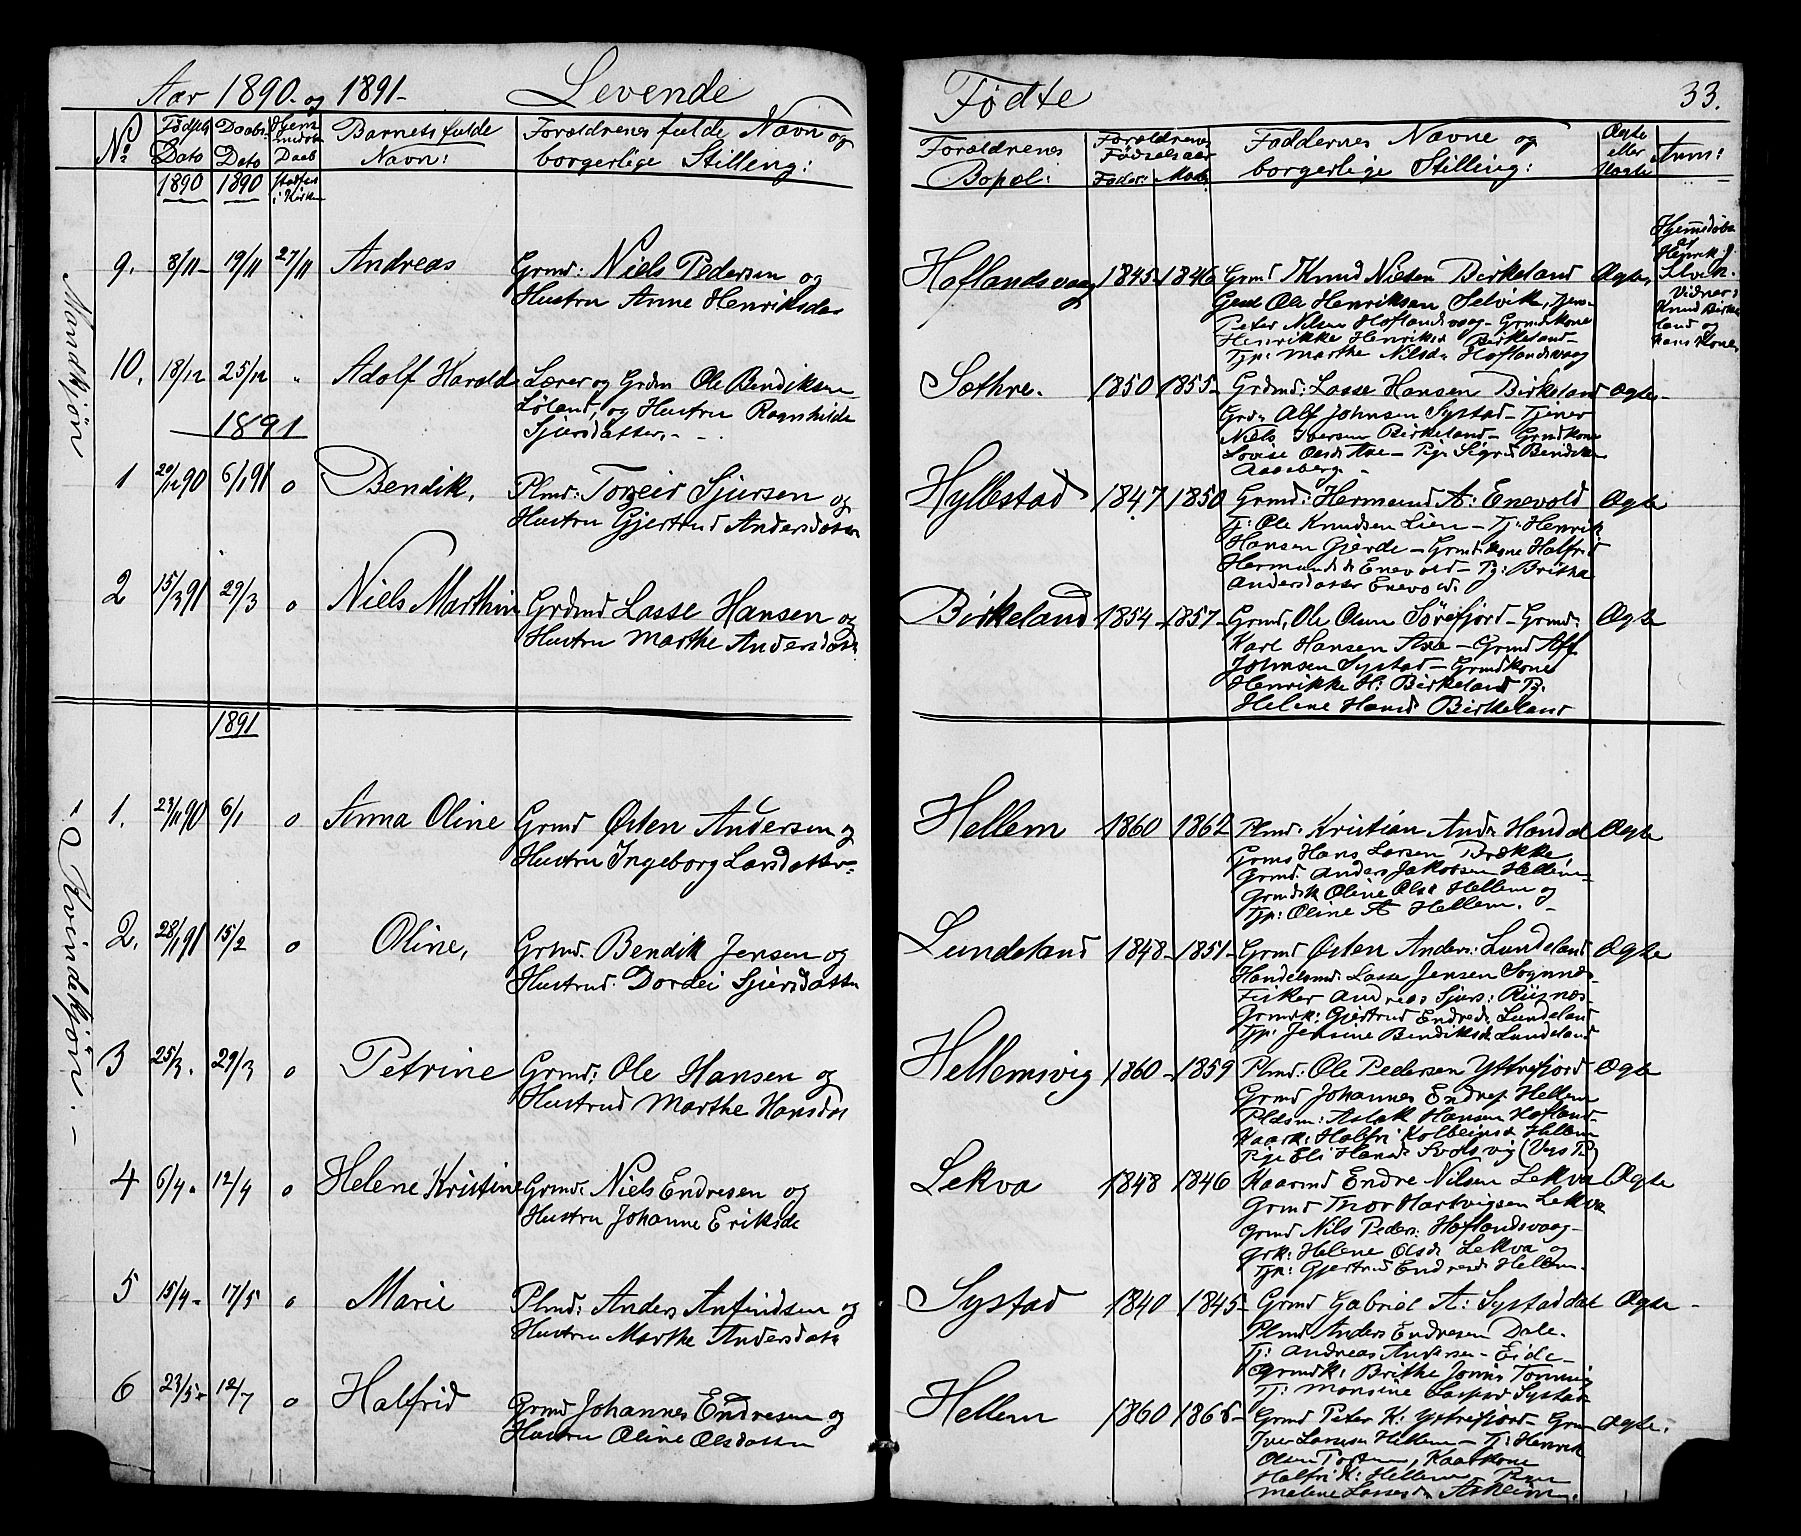 Aar 1890 og 1891 Levende
No Fødsels Dato Daabs Dato Hjemmedøbt Daab stadfæst i Kirken Barnets fulde Navn: Forældrenes fulde Navn og borgerlige Stilling:
1890 1890
Mandkjön
9. 8/11 19/11 27/11 Andreas Grmd: Niels Pedersen og
Hustru Anne Henriksdat
10. 18/12 25/12 " Adolf Harold Lærer og Grdm Ole Bendiksen
Løland, og Hustru Ragnhilde
Sjursdatter
1891
1 29/12 90 6/1 91 o Bendik, Plmd: Torgeir Sjursen og
Hustru Gjertrud Andersdatter
2 15/3 91 29/3 o Niels Marthin Grdmd Lasse Hansen og
Hustru Marthe Andersdatt
1891
Qvindekjön
1. 23/11 90 6/1 o Anna Oline Grmd Østen Andersen og
Hustru Ingeborg Larsdatter
2. 28/1 91 15/2 o Oline, Grmd. Bendik Jensen og
Hustrud. Dordei Sjursdatter
3 25/3. 29/3 o Petrine Grmd: Ole Hansen og
Hustrud Marthe Hansdat
4 6/4 12/4 o Helene Kristine Grmd: Niels Endresen og
Hustru Johanne Eriksda
5 15/4 17/5 o Marie Plmd: Anders Anfindsen og
Hustru Marthe Andersdatt
6 23/5 12/7 o Halfrid Grmd Johannes Endresen og
Hustru Oline Olsdatter
Fødte 33.
Forældrenes Bopel: Forældrenes Födselsaar Fader: Mod: Faddernes Navne og borgerlige Stilling: Ægte eller Uægte Anm:
Hoflandsvaag 1845 1846 Grmd Knud Nielsen Birkeland Ægte,
Ole Henriksen Selvik,
Peter Nilsen Hoflandsvaag - Grmdkone
Henrikke Henriksd Birkeland
Tjp: Marthe Nilsda Hoflandsvaag
Hjemmedøbt
af
Henrik J
Selvik.
Vidner:
Knud Birke
land og
hans Kone
Sæthre. 1850 1855 Grdmd: Lasse Hansen Birkeland Ægte
Grdm Alf Johnsen Systad - Tjener
Niels Iversen Birkeland - Grmdkone
Lovise Olsd - Pige Sigr Bendikke
Aaseberg
Hyllestad 1847 1850 Grmd: Hermund A: Enevold Ægte
Tj: Ole Knudsen Lien - Tj: Henrik
Hansen Gjerde - Grmdkone Halfrid
Hermundsd Enevold - Pj: Britha
Andersdatter Enevold
Birkeland 1854 1857 Grmd, Ole Olsen Sörefjord - Grmd: Ægte
Karl Hansen Axa - Grmd Alf
Johnsen Systad - Grmdkone
Henrikke H: Birkeland Pj.
Helene Hansd Birkeland
Hellem 1860 1862 Plmd: Kristian Andr Handal Ægte
Grmd Hans Larsen Brække,
Grmd. Anders Jakobsen Hellem
Grmdk Oline Olsd Hellem og
Tjp: Oline A Hellem.
Lundeland 1848 1851 Grmd Østen Anders: Lundeland Ægte
Handelsmd: Lasse Jensen Sognnes
Fisker Andreas Sjurs: Risnæs
Grmdk: Gjertrud Endresd Lundeland
Tjp: Jensine Bendiksd Lundeland
Hellemsvig 1860 1859 Plmd: Ole Pedersen Yttrefjord Ægte
Grmd Johannes Endres Hellem
Pldsm: Aslak Hansen Hofland
Kaark: Halfri Kolbeinsd Hellem
Pige Eli Hansd
Lekva 1848 1846 Kaarmd Endre Nilsen Lekva Ægte
Grmd Thor Hartvigsen Lekva
Grmd Nils Peders: Hoflandsvaag
Grk: Helene Olsd Lekva og
Tjp: Gjertrud Endresd Hellem.
Systad 1840 1845 Grmd Gabriel A: Systaddal Ægte
Plmd Anders Endresen Dale.
Tj: Andreas Andersen - Eide
Grmdk: Brithe Jonsd Tonning
Tj: Monsine Systad
Hellem 1860 1866 Grmd Peter K: Ytrefjord - Grm Ægte.
Iver Larsen Hellem - Tj: Henrik
Olsen, Kaarkone
Halfri K: Hellem
Malene Lassesd Askeim